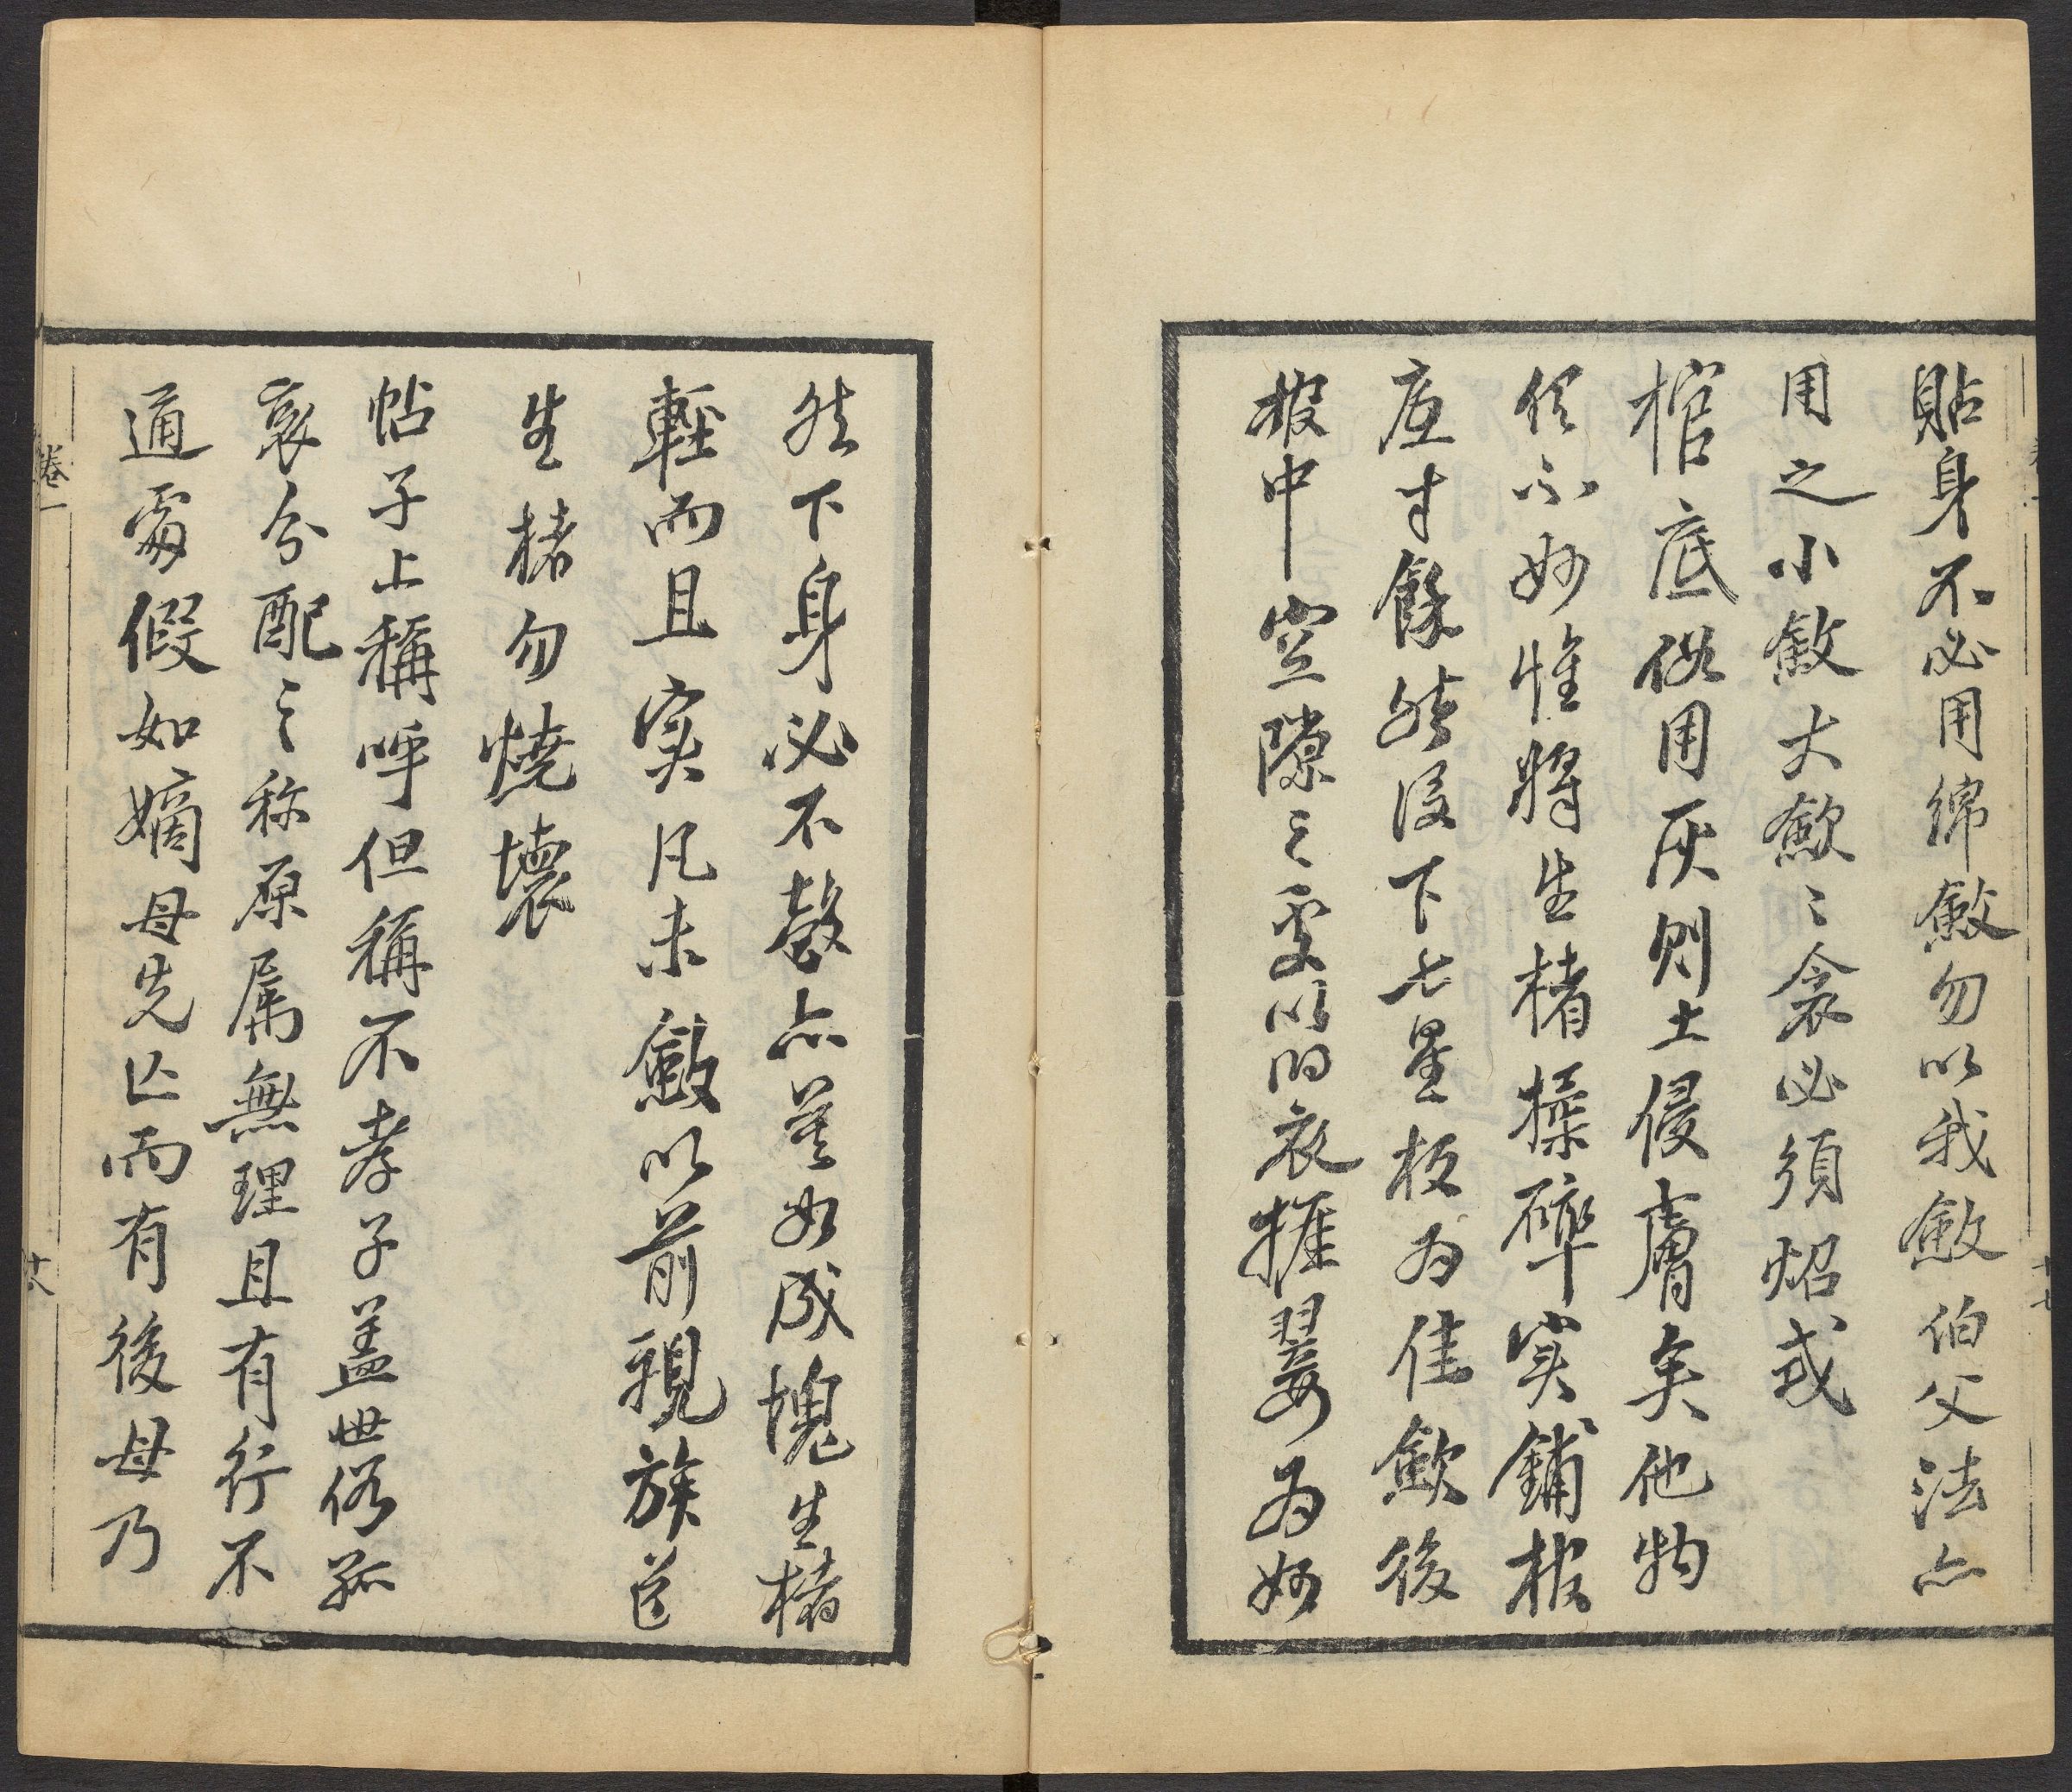 貼身不必用綿斂勿以我斂伯父法亦
用之小斂大斂之衾必須焰或
棺底俗用灰則土侵膚矣他物
俱不妙惟將生楮揉碎实鋪根
底寸餘然後下七星板为佳斂後
棺中空隙之処以旧衣握翣为妙
然下身必不整亦莫如成塊生楮
輕而且实凡未斂以前親族送
生楮勿燒壞
帖子上稱呼但稱不孝子盖世俗孤
哀分配之称原属無理且有行不
通處假如嫡母先亡而有後母乃
卷一
十八